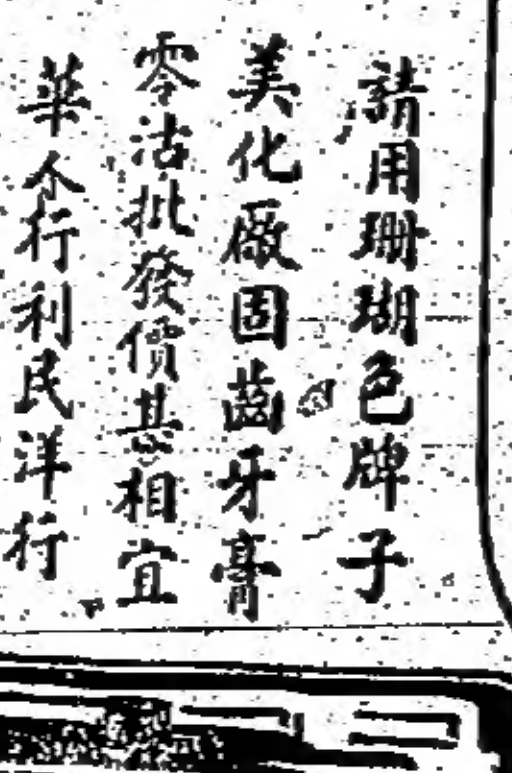 請用珊瑚色牌子
美化廠固齒牙膏
零沽批發價甚相宜
華介行利民洋行